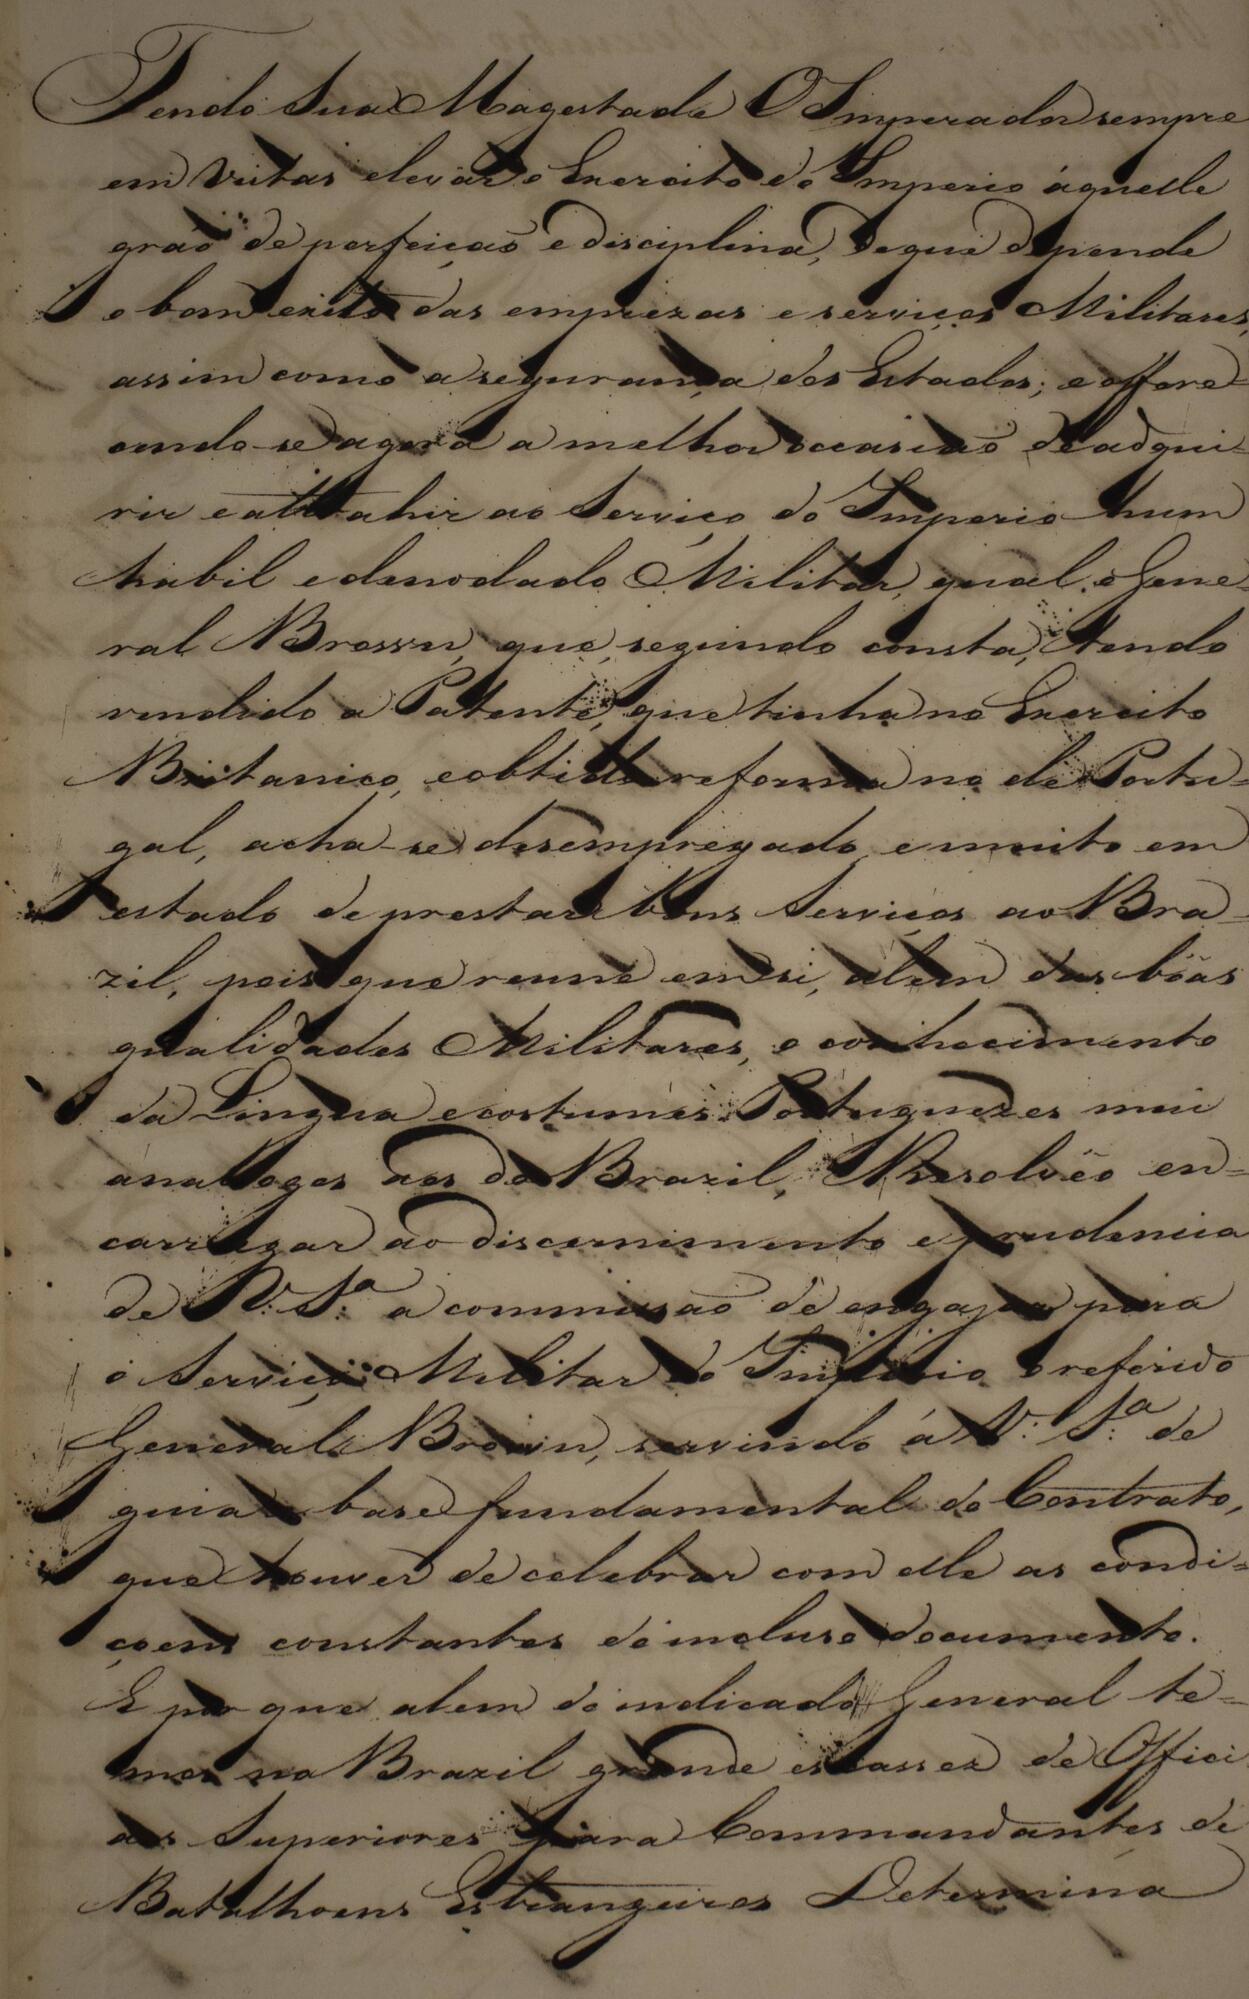 Tendo Sua Magestade O Imperador sempre
em vistas elevar o Exercito do Imperio áquelle
gráo de perfeição e disciplina, de que depende
o bom exito das emprezas e serviços Militares,
assim como a segurança dos Estados; e offere=
cendo-se agora a melhor occasião de adqui=
rir e attrahir ao Serviço do Imperio hum
habil e denodado Militar, qual o Gene=
ral Brown, que, segundo consta, tendo
vendido a Patente, que tinha no Exercito
Britanico, e obtido reforma no de Portu=
gal, acha-se desempregado, e muito em
estado de prestar bons Serviços ao Bra=
zil, pois que reune em si, alem das bôas
qualidades Militares, o conhecimento
da Lingua e costumes Portuguezes mui
analogos aos do Brazil, Resolvêo en=
carregar ao discernimento e prudencia
de V. S.ª a commissão de engajar para
o Serviço Militar do Imperio o referido
General Brown, servindo á V. S.ª de
guia e base fundamental do Contrato,
que houver de celebrar com elle as condi=
çoens constantes do incluso documento.
E por que alem do indicado General te=
mos no Brazil grande escassez de Offici
aes Superiores para Commandantes de
Batalhoens Estrangeiros Determina